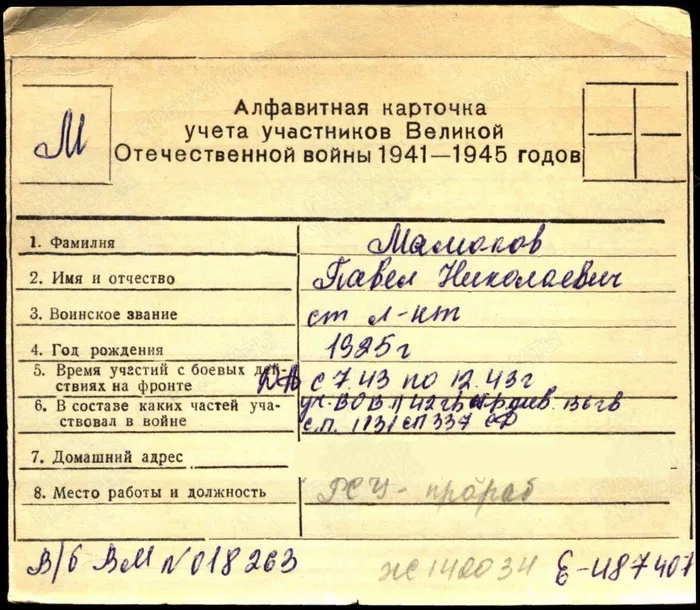 М
Алфавитная карточка
учета участников Великой
Отечественной войны 1941—1945 годов
1. Фамилия Мамоков
2. Имя и отчество Павел Николаевич
3. Воинское звание ст л-нт
4. Год рождения 1925 г
5. Время участий с боевых дей-
ствиях на фронте с 7.43 по 12.43 г
6. В составе каких частей уча-
ствовал в войне с.п. 1131 сп 337 СД
7. Домашний адрес
8. Место работы и должность РСУ - прораб
В/б ВМ № 018263 ЖС 142034 Е-487407